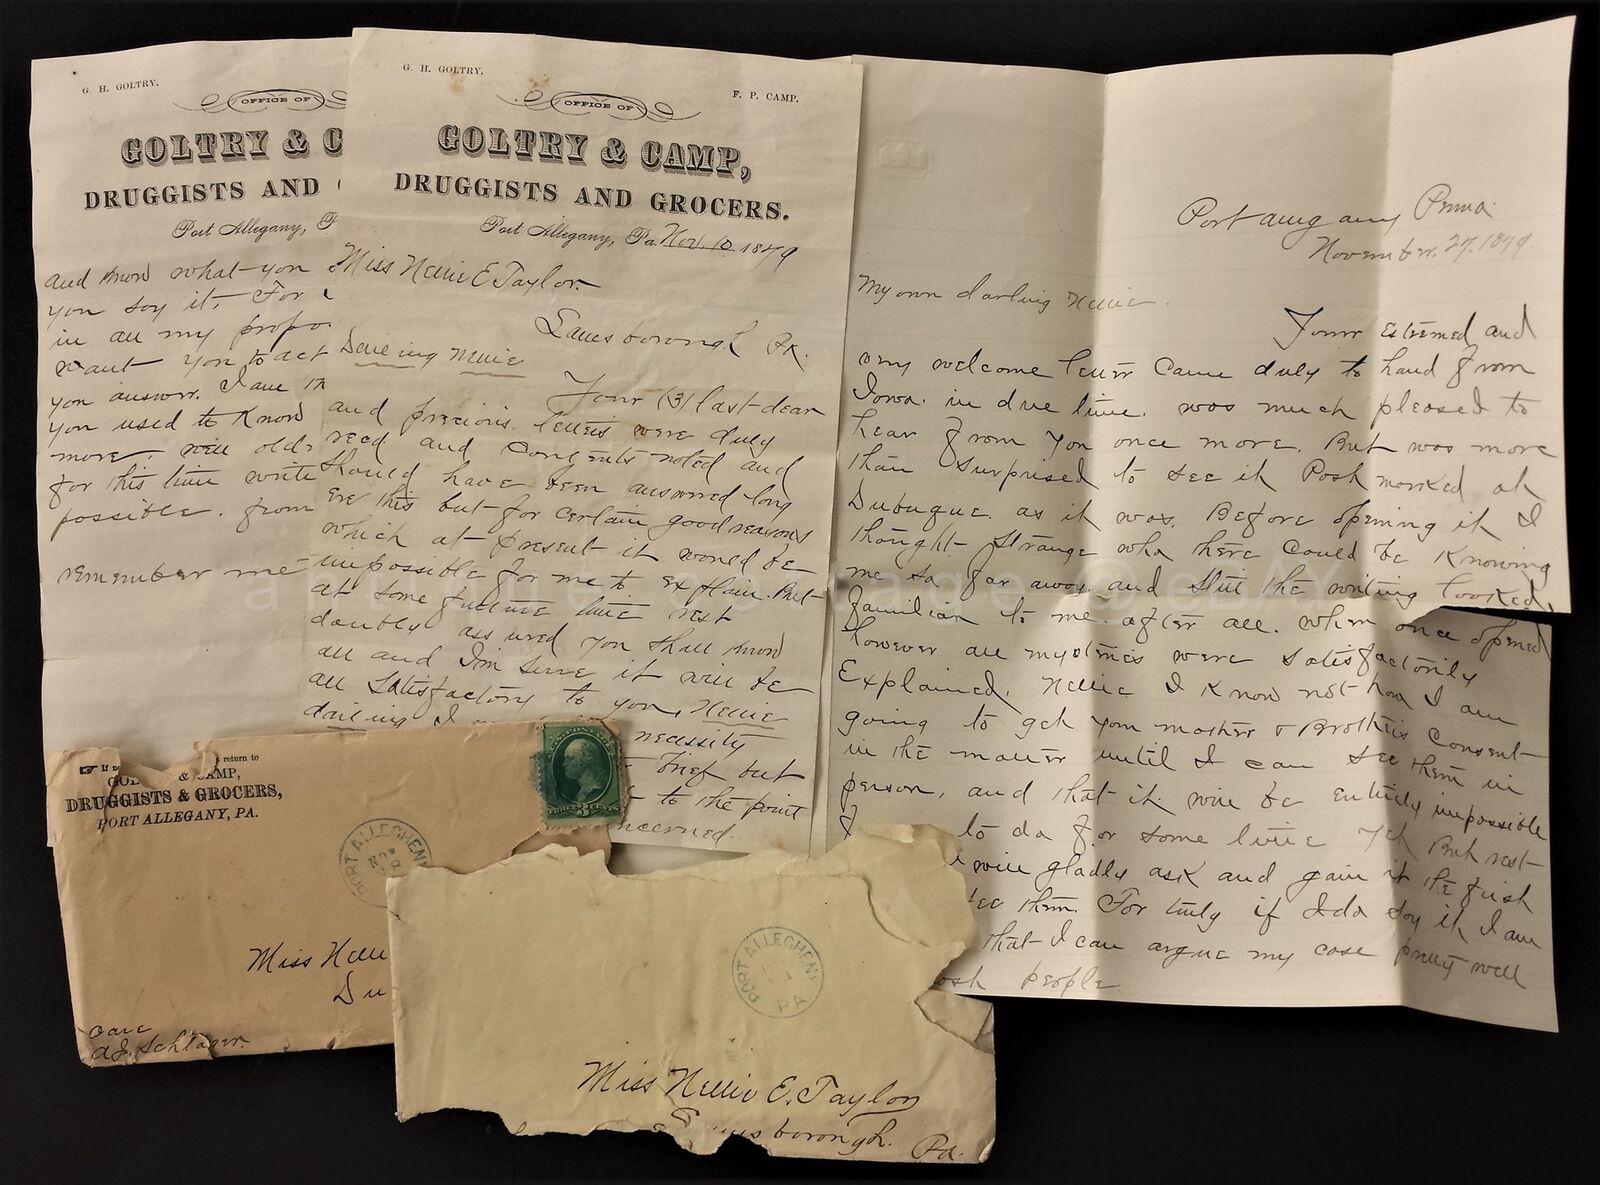 G. H. GOLTRY.
OFFICE OF
GOLTRY & C
DRUGGISTS AND
Port Allegany, P
and know what you
you say it, For
in all my propo
want you to act
you answer. I am
you used to know
more, will
for this time write
possible. from
remember me
G. H. GOLTRY.
F. P. CAMP.
OFFICE OF
GOLTRY & CAMP,
DRUGGISTS AND GROCERS.
Port Allegany, Pa. Nov. 10 1879
Miss Nellie E. Taylor.
Lanesborough Pa.
Darling Nellie
Your (3) last dear
and precious letters were duly
recd and contents noted and
should have been answered long
ere this but for certain good reasons
which at present it would be
impossible for me to explain. But
at some future time rest
doubly assured you shall know
all and I'm sure it will be
all satisfactory to you, Nellie
darling I
necessity
brief but
to the point
ncerned.
Penna.
November. 27. 1879.
My own darling Nellie.
Your esteemed and
very welcome letter came duly to hand from
Iowa. in due time. was much pleased to
hear from you once more. But was more
than surprised to see it Post marked at
Dubuque. as it was. Before opening it I
thought strange who there could be knowing
me so far away. and still the writing looked
familiar to me. after all. when once opened
however all mysteries were satisfactorily
Explained. Nellie I know not how I am
going to get your mother & Brothers consent
in the matter until I can see them in
person, and that it will be entirely impossible
to do for some time yet But rest
will gladly ask and gain it the first
see them. For truly if I do say it, I am
that I can argue my case pretty well
people.
return to
& CAMP,
DRUGGISTS & GROCERS,
PORT ALLEGANY, PA.
PORT ALLEGHENY
NOV
THREE CENTS
Miss Nellie
Du
Care
A.J. Schlager.
PORT ALLEGHENY
PA
Miss Nellie E. Taylor
borough.
Pa.